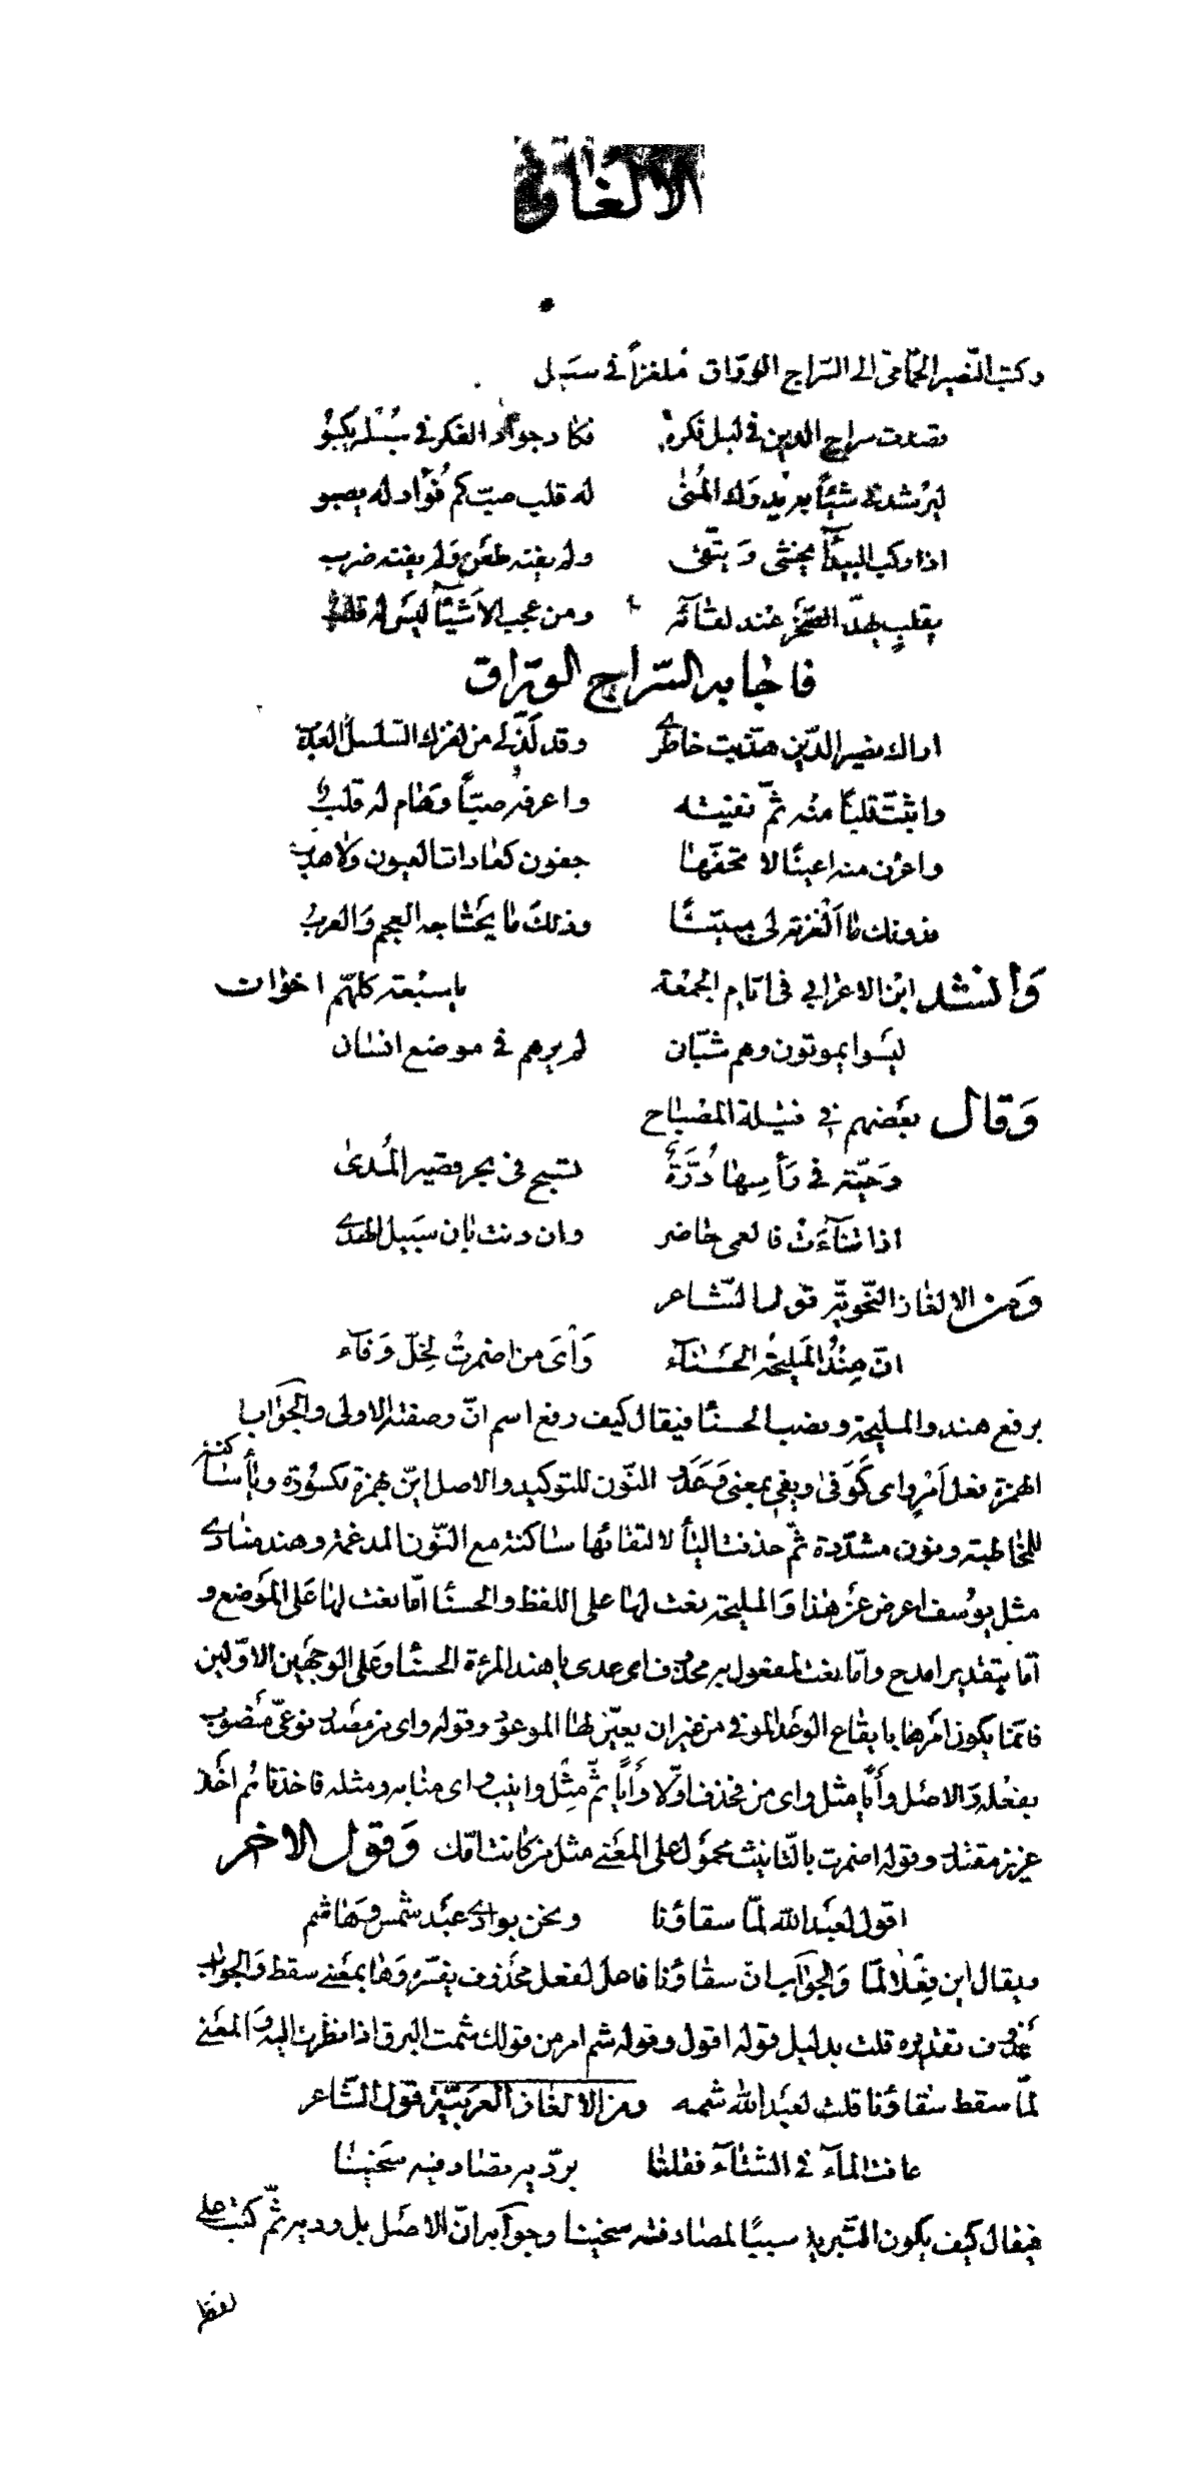 الالغاز
وكتب النصير الحمّامىّ الى السّراج الورّاق مُلغزاً فى سبيل
سراج الدين فى ليل فكرة فكاد جواد الفكر فى سُبُله يكبُو
ليرشد شيئاً المُنىٰ له قلب صبّ كم فُؤاد له يصبو
اذا ركب البيدآ يخشى وَيتّقى ولم يفته طعَن وَلم يفته ضرب
بقلبٍ يهدّ الصّخر عند لقآئه ومن عجب الاَشيآ ليسَ له قلب
فاجابه السّراج الورّاق
اراك نصير الدّين هذّبت خاطرى وقد لَذّ لى من لغزك السّلسل العذب
واثبتّ قلباً منه ثمّ نفيته واعرفُه صبّاً وَما له قلب
واعرف منه اعينًا لا تحفّها جفون كعادات العيون ولا هدب
فدونك ما اَلْغزته لى مبيّنًا وذلكَ ما يحتاجه العجم وَالعربُ
وَأنشد ابْن الاعرابى فى ايّام الجمعة ما سبْعة كلهّم اخوٰان
ليسَوا يموتون وهم شبّان لم يرهم فى موضع انسٰان
وَقال بعَضهم فى فتيلة المصْباح
وحَيّة فى رَأسِهٰا دُرَّةٌ تسبح فى بحر قصير المُدىٰ
اذا تنآءَتْ فالعمى حٰاضر وان دنت بٰان سبَيل الهدى
وَمن الالغٰاز النّحويّة قول الشّاعر
انّ هِنْدُ المَليحُة الحسَنٰآء وَأْىَ من اضمرتْ لِخِلّ وَفآء
برفع هند والمليحة ونصب الحسنآ فيقال كيف رفع اسم انّ وصفته الاولى والجوٰاب
الهمزة فعل اَمْرٍ اى كَوَفىٰ ويفى بمعنى وَعَدَ النّون للتوكيد والاصل ايّن بهمزة مكسُورة ويٰأ سٰاكنة
للمخٰاطبة ونون مشدّدة ثمّ حذفت اليأ لالتقائها سٰاكنة مع النّون المدغمة وهند منٰادى
مثل يوُسف اعرض عَن هٰذا وَالمليحة نعت لهٰا على اللفظ والحسنٰا امّا نعت لهٰا عَلى المَوضع و
امّا بتقدير امدح وامّا نعت لمفعول به محذوف اى عدى يا هند المرءة الحسنٰا وعَلى الوجهَين الاوّلين
فانّما يكون امَرها بايقٰاع الوعَد الموفى من غير ان يعيّن لهٰا الموعود وقوله واى من مصَدر نوعىّ منصَوب
بفعْله وَالاصَل وأيًا مثل واى من فحذف اوّلا وَأيًا ثمّ مِثل وانيب واى منٰابه ومثله فاخذنٰاهُم اخَذ
عزيز مقتدر وقوله اضمرت بالتّانيث محموَل على المعَنى مثل من كٰانت امّك وَقول الاخر
اقول لعبَد الله لمّا سقاؤنا ونحن بوادى عبَد شمس وَهٰاشم
فيقال اين فِعْلا لمّا وَالجوآب انّ سقٰاؤنا فاعل لفعل محَذوف يفسّره وَهٰا بمعَنى سقط وَالجوٰاب
محذوف تقديره قلت بدليل قوله اقول وقوله شم امر من قولك شمت البرق اذا نظرت اليه وَالمعَنى
لمّا سقط سقاؤنا قلت لعبَد الله شمه ومن الالغاز العربيّة قول الشّاعر
عافت المآء فى الشتٰآء فقلنٰا برّديه تصادفيه سَخينٰا
فيقال كيف يكون التّبريد سببًا لمصٰادفته سخينا وجوآبه انّ الاصَل بل رديه ثمّ كتب على
لفظ